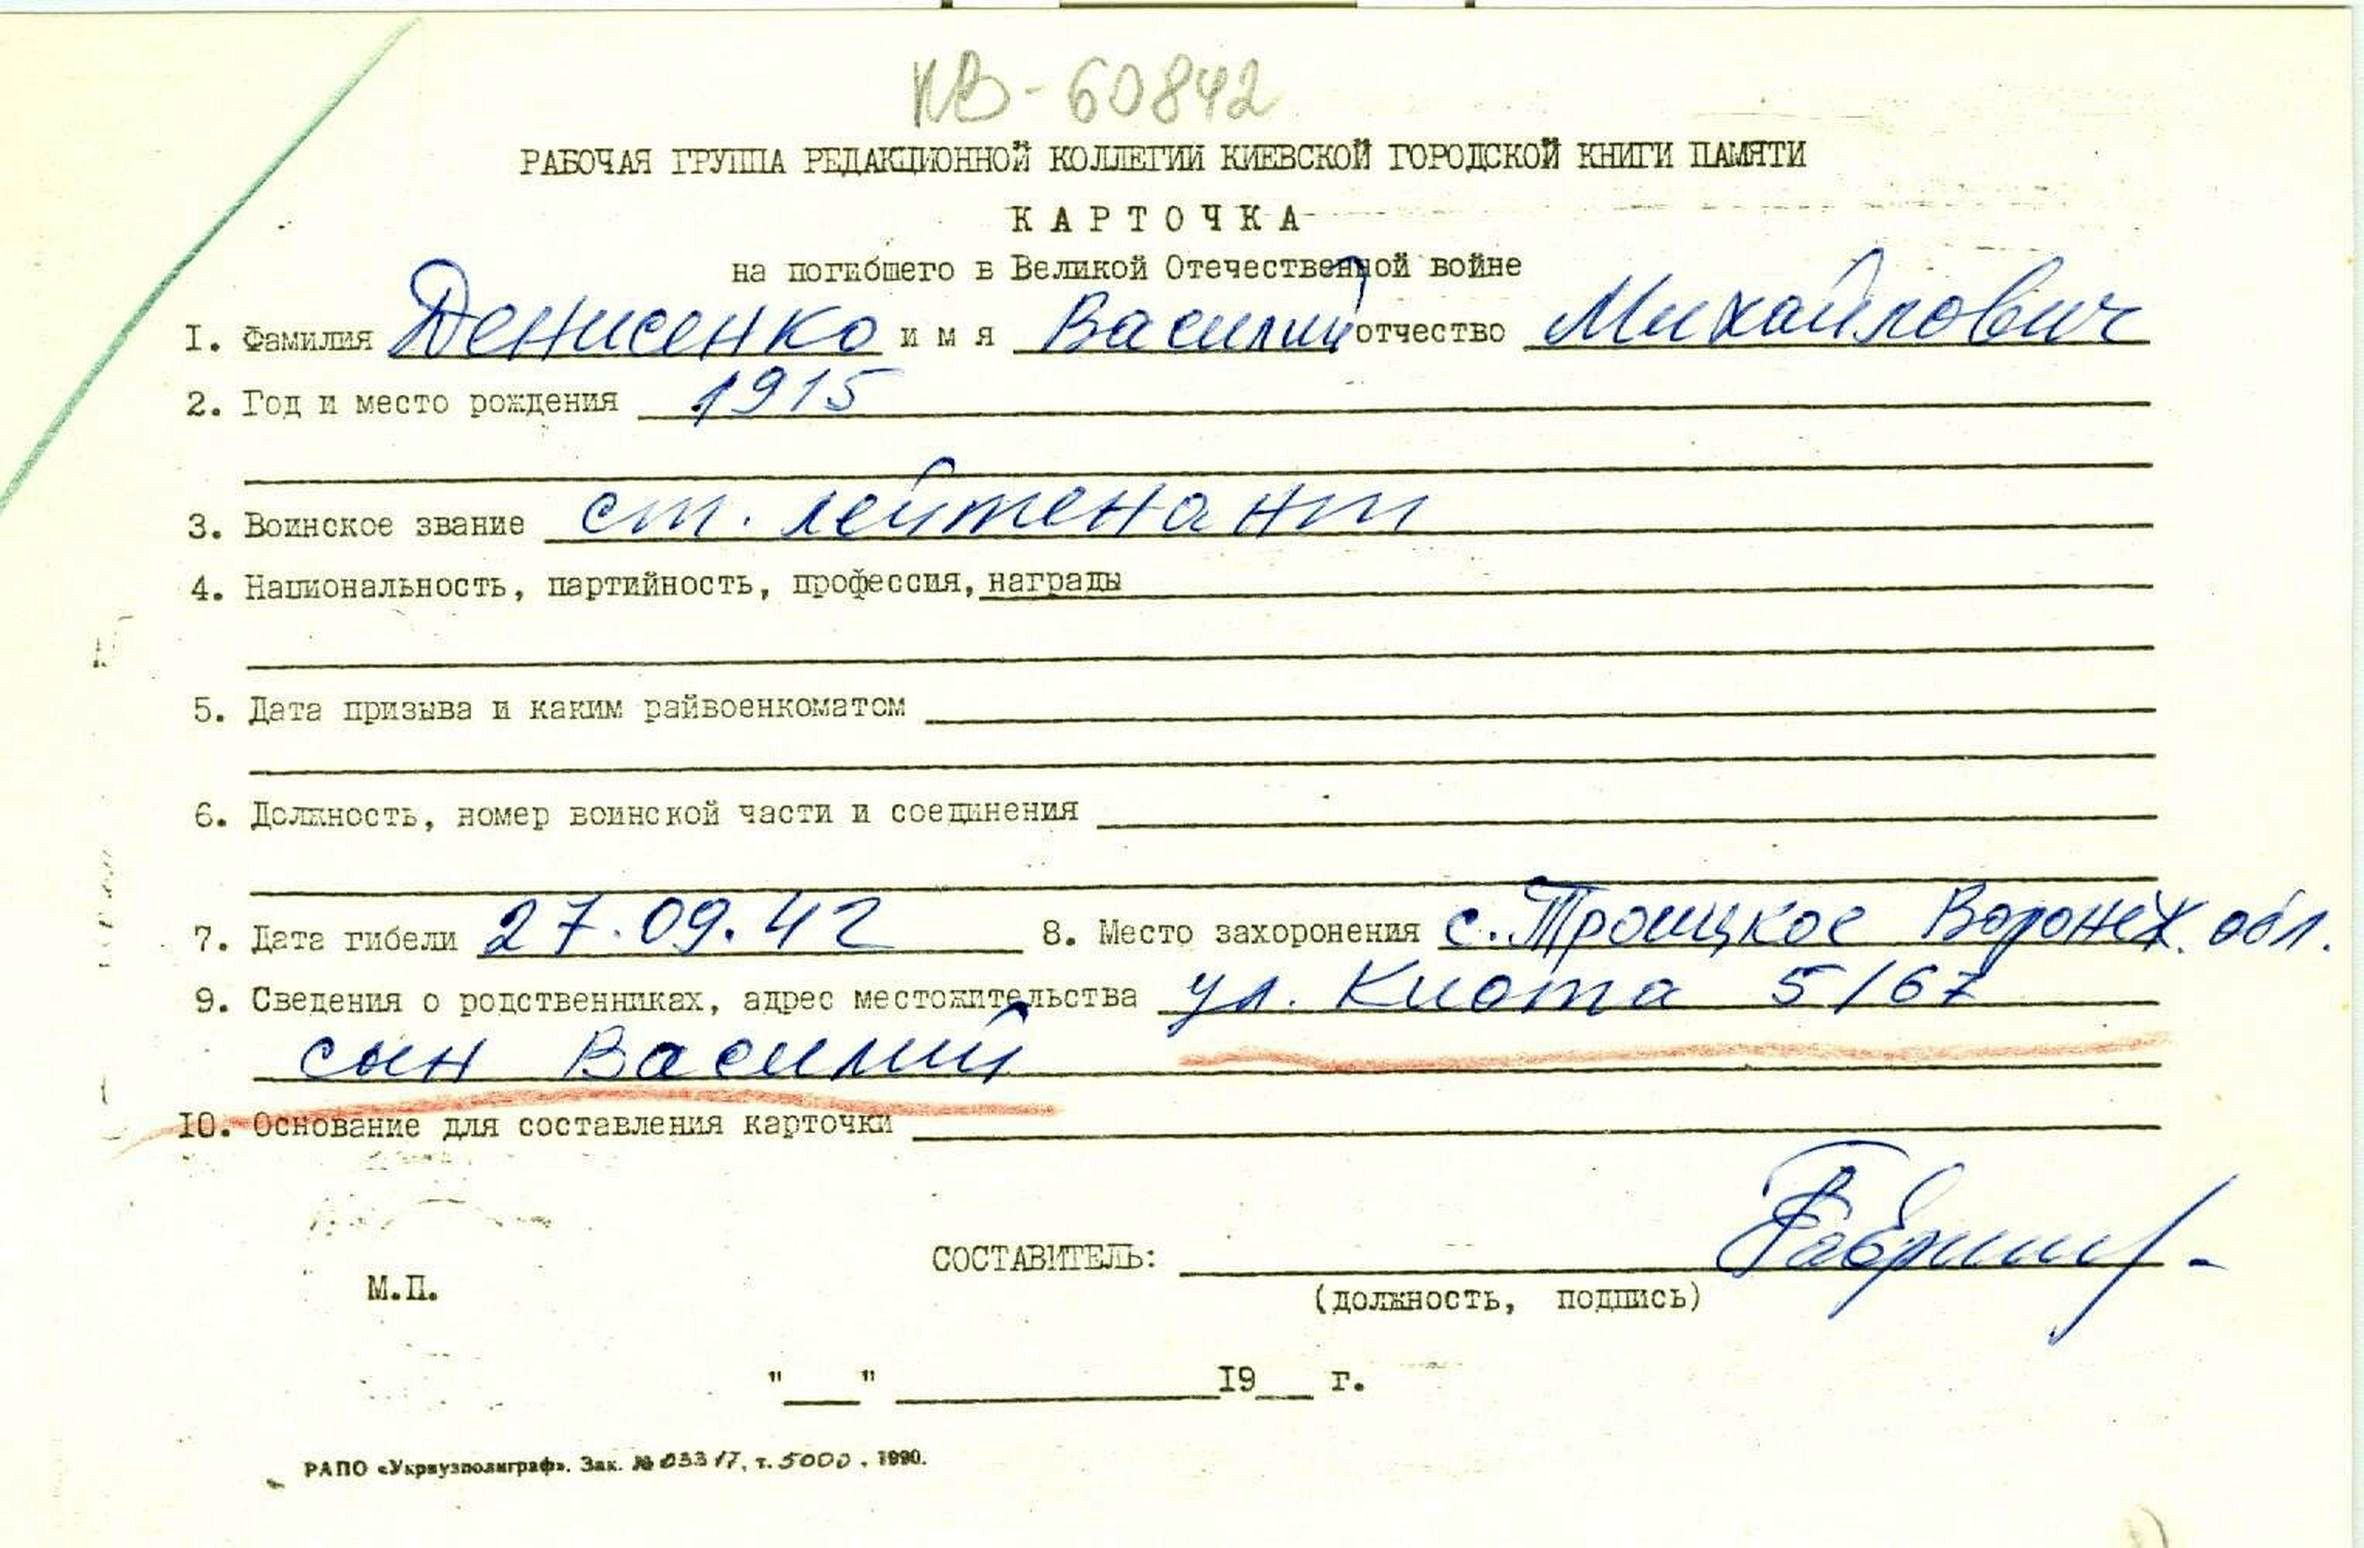 КВ-60842
РАБОЧАЯ ГРУППА РЕДАКЦИОННОЙ КОЛЛЕГИИ КИЕВСКОЙ ГОРОДСКОЙ КНИГИ ПАМЯТИ
КАРТОЧКА
на погибшего в Великой Отечественной войне
I. Фамилия Денисенко имя Василий отчество Михайлович
2. Год и место рождения 1915
3. Воинское звание ст. лейтенант
4. Национальность, партийность, профессия, награды
5. Дата призыва и каким райвоенкоматом
6. Должность, номер воинской части и соединения
7. Дата гибели 27.09.42 8. Место захоронения с. Троицкое Воронеж. обл.
9. Сведения о родственниках, адрес местожительства ул. Киота 5/67
сын Василий
IO. Основание для составления карточки
СОСТАВИТЕЛЬ:
(должность, подпись)
М.П.
"___" ______ 19__ г.
РАПО «Укрвузполиграф». Зак. № 03317, т. 5000, 1990.